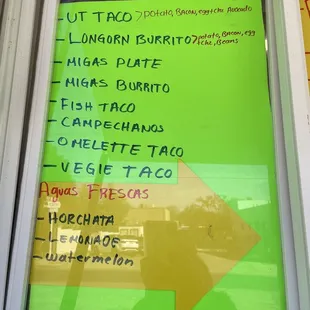 - UT TACO > potato, Bacon, egg + che Avocado
- LONGORN BURRITO > potato, Bacon, egg
+ che, Beans
- MIGAS PLATE
- MIGAS BURRITO
- FISH TACO
- CAMPECHANOS
- OMELETTE TACO
- VEGIE TACO
Aguas FRESCAS
- HORCHATA
- LEMONADE
- watermelon